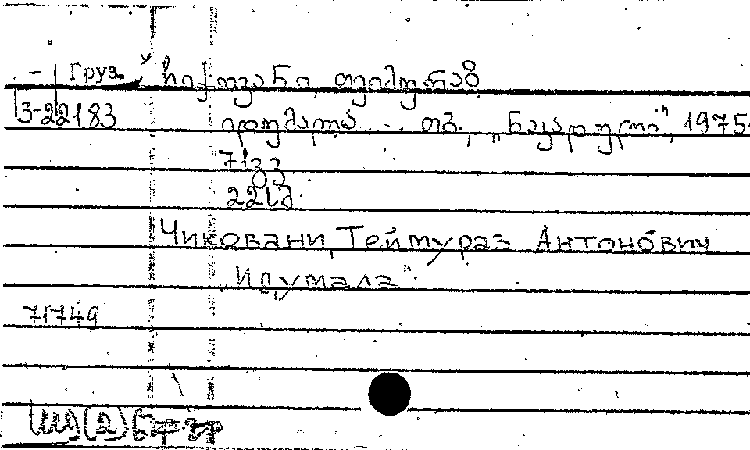 Груз. ჩიქოვანი თეიმურაზ
3-22183
იდუმალა თბ., „ნაკადული", 1975.
71გვ
22სმ.
Чиковани, Теймураз Антонович
„Идумала".
71749